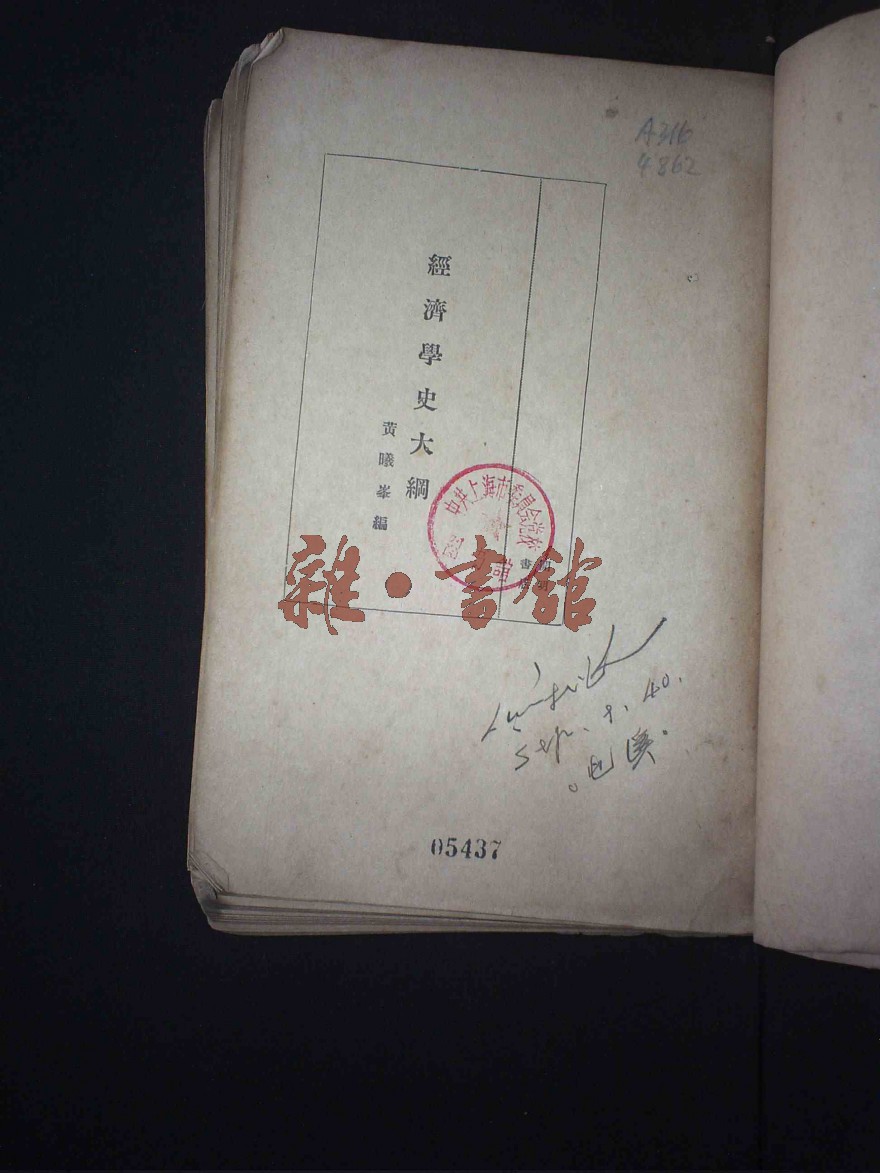 A316
4862
經濟學史大綱
黃曦峯編
中共上海市委員会党校
書
雜·書館
Sep. 9. 40.
05437